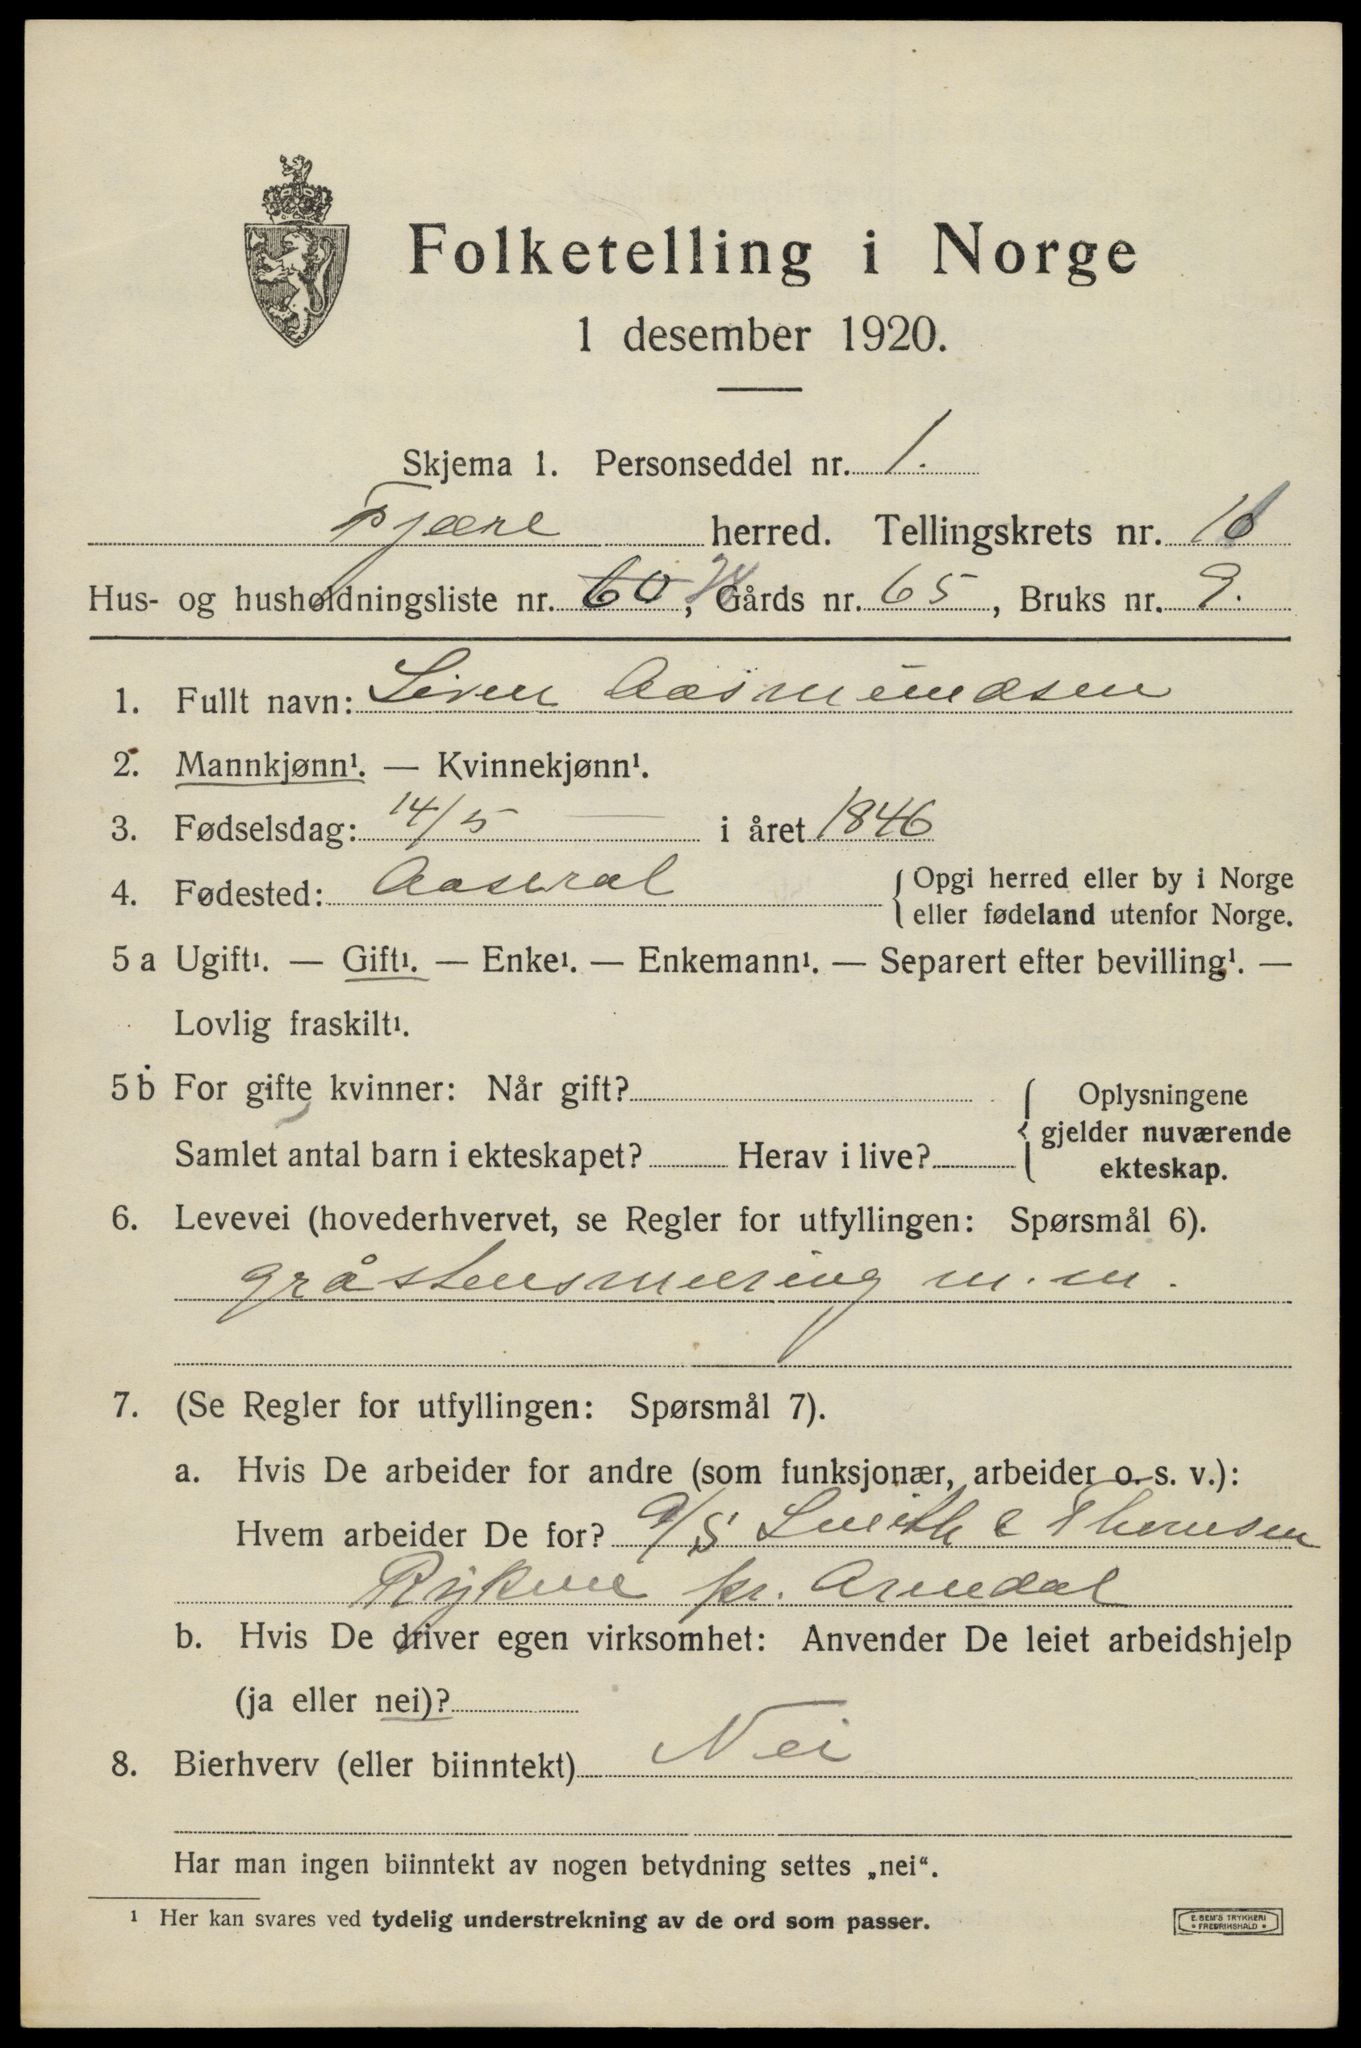 Folketelling i Norge
1 desember 1920.
Skjema 1. Personseddel nr. 1.
Fjære herred. Tellingskrets nr. 10
Hus- og husholdningsliste nr. 60, Gårds nr. 65, Bruks nr. 9.
1. Fullt navn: Siven Aasmundsen
2. Mannkjønn¹. — Kvinnekjønn¹.
3. Fødselsdag: 14/5 — i året 1846
4. Fødested: Aaseral { Opgi herred eller by i Norge
eller fødeland utenfor Norge.
5 a Ugift¹. — Gift¹. — Enke¹. — Enkemann¹. — Separert efter bevilling¹. —
Lovlig fraskilt¹.
5 b For gifte kvinner: Når gift? { Oplysningene
gjelder nuværende
Samlet antal barn i ekteskapet? Herav i live? ekteskap.
6. Levevei (hovederhvervet, se Regler for utfyllingen: Spørsmål 6).
gråstensmuring m.m.
7. (Se Regler for utfyllingen: Spørsmål 7).
a. Hvis De arbeider for andre (som funksjonær, arbeider o. s. v.):
Hvem arbeider De for? A/S Smith & Thomsen
Rykene pr. Arendal
b. Hvis De driver egen virksomhet: Anvender De leiet arbeidshjelp
(ja eller nei)?
8. Bierhverv (eller biinntekt) Nei
Har man ingen biinntekt av nogen betydning settes „nei“.
¹ Her kan svares ved tydelig understrekning av de ord som passer.
E. SEM'S TRYKKERI
• FREDRIKSHALD •